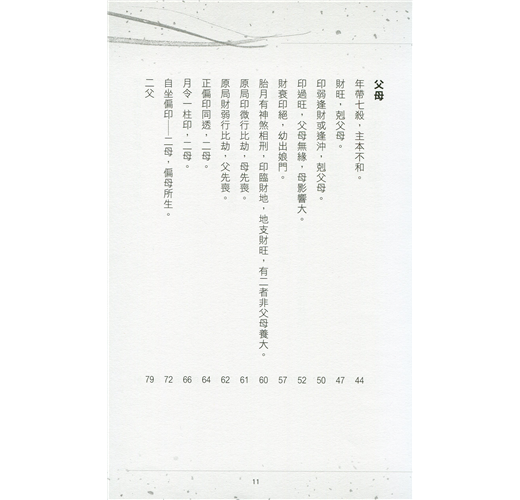 父母
年帶七殺，主本不和。 44
財旺，剋父母。 47
印弱逢財或逢沖，剋父母。 50
印過旺，父母無緣，母影響大。 52
財衰印絕，幼出娘門。 57
胎月有神煞相刑，印臨財地，地支財旺，有二者非父母養大。 60
原局印微行比劫，母先喪。 61
原局財弱行比劫，父先喪。 62
正偏印同透，二母。 64
月令一柱印，二母。 66
自坐偏印——二母，偏母所生。 72
二父 79
11